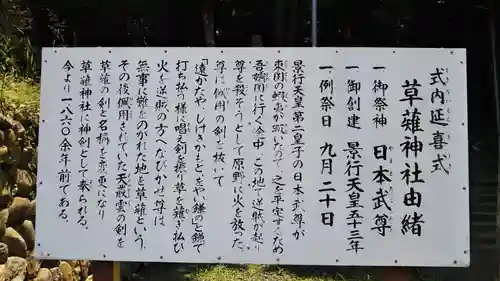 式内延喜式
草薙神社由緒
一 御祭神 日本武尊
一 御創建 景行天皇五十三年
一 例祭日 九月二十日
景行天皇第二皇子の日本武尊が
東国の蝦夷が叛いたので之を平定するため
吾嬬国に行く途中この地で逆賊が起り
尊を殺そうとして原野に火を放った。
尊は佩用の剣を抜いて
「遠かたや、しげきかもと、をやい鎌の」と鎌で
打ち払う様に唱え剣を振り草を薙ぎ払ひ
火を逆賊の方へなびかせ尊は
無事に難をのがれた地を草薙という。
その後佩用されていた天叢雲の剣を
草薙の剣と名称を変更になり
草薙神社に神剣として奉られる。
今より一八六〇余年前である。